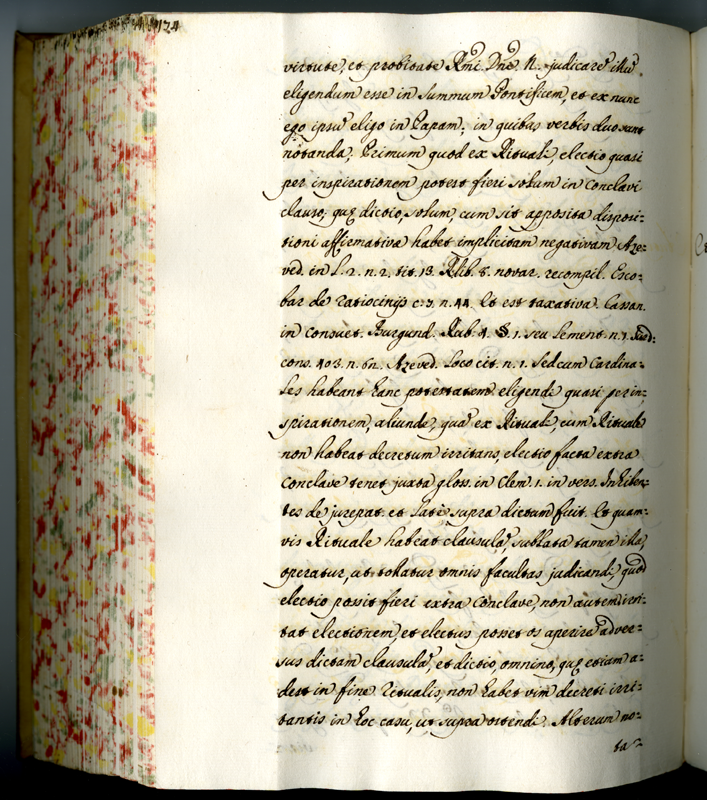 124
virtute, et probitate Rmi. Dnī N. judicare illū
eligendum esse in Summum Pontificem, et ex nunc
ego ipsū eligo in Papam; in quibus verbis duo sunt
notanda. Primum quod ex Rituali, electio quasi
per inspirationem potest fieri solum in Conclavi
clauso; quę dictio, solum cum sit apposita disposi:
tioni affirmativa habet implicitam negativam Aze:
ved. in l. 2. n. 2. tit. 13. lib. 8. novar. recompil. Esco:
bar de ratiocinijs c. 3. n. 44. Et est taxativa. Cassan.
in Consuet. Burgund. Rub. 4. §. 1. seu lement. n. 1.
cons. 403. n. 6n. Azeved. loco cit. n. 1. Sed cum Cardina:
les habeant hanc potestatem eligendi quasi per in:
spirationem, aliunde, quā ex Rituali, cum Rituale
non habeat decretum irritans, electio facta extra
Conclave tenet juxta gloss. in Clem. 1. in vers. Inhiben:
tes de jurepat. et late supra dictum fuit. Et quam:
vis Rituale habeat clausulā, sublata tamen illa,
operatur, ut tollatur omnis facultas judicandi, quod
electio possit fieri extra Conclave, non autem irri:
tat electionem, et electus posset os aperire adver:
sus dictam clausulā, et dictio, omnino, quę etiam a:
dest in fine Ritualis, non habet vim decreti irri:
tantis in hoc casu, ut supra ostendi. Alterum no:
ta